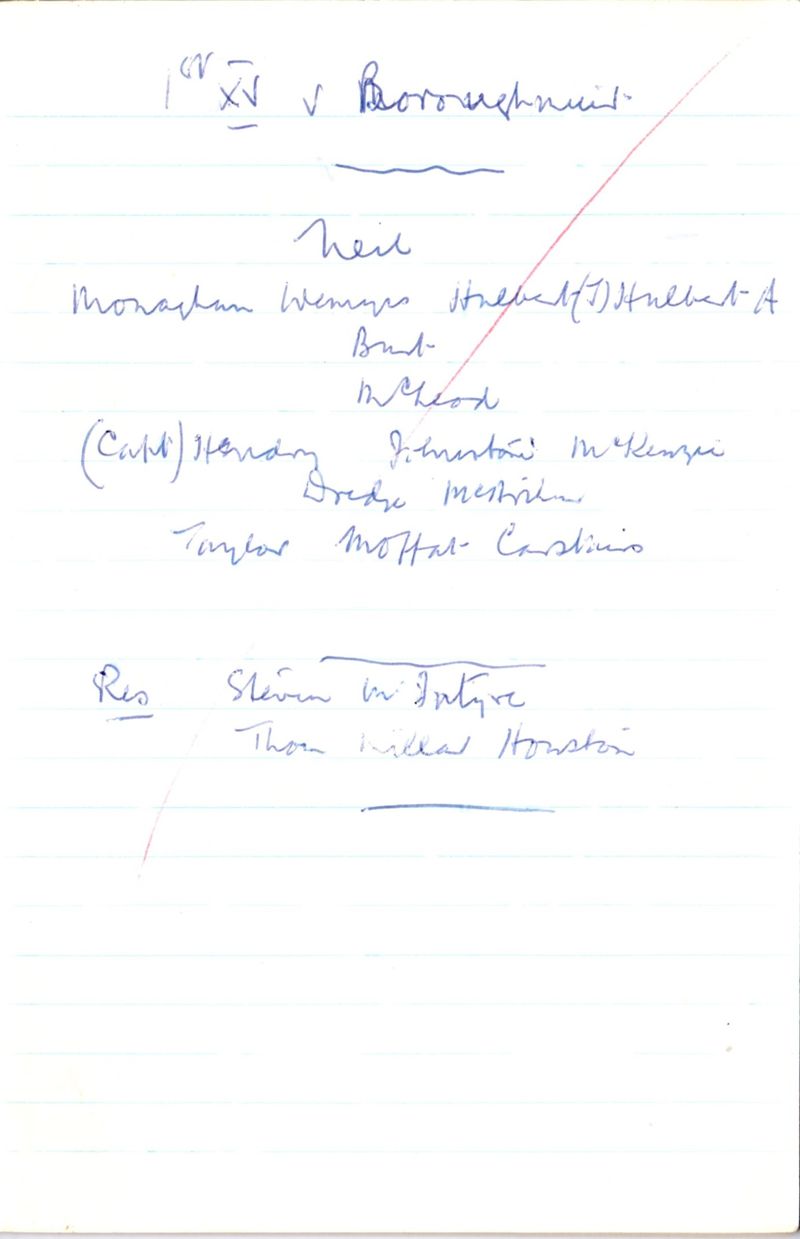 1st XV v Boroughmuir
Neil
Monaghan Wemyss Hulbert (J) Hulbert A
McLeod
(Capt) Hendry Johnstone McKenzie
Dredge
Taylor Moffat Carstairs
Res Steven McIntyre
Thom Millar Houston